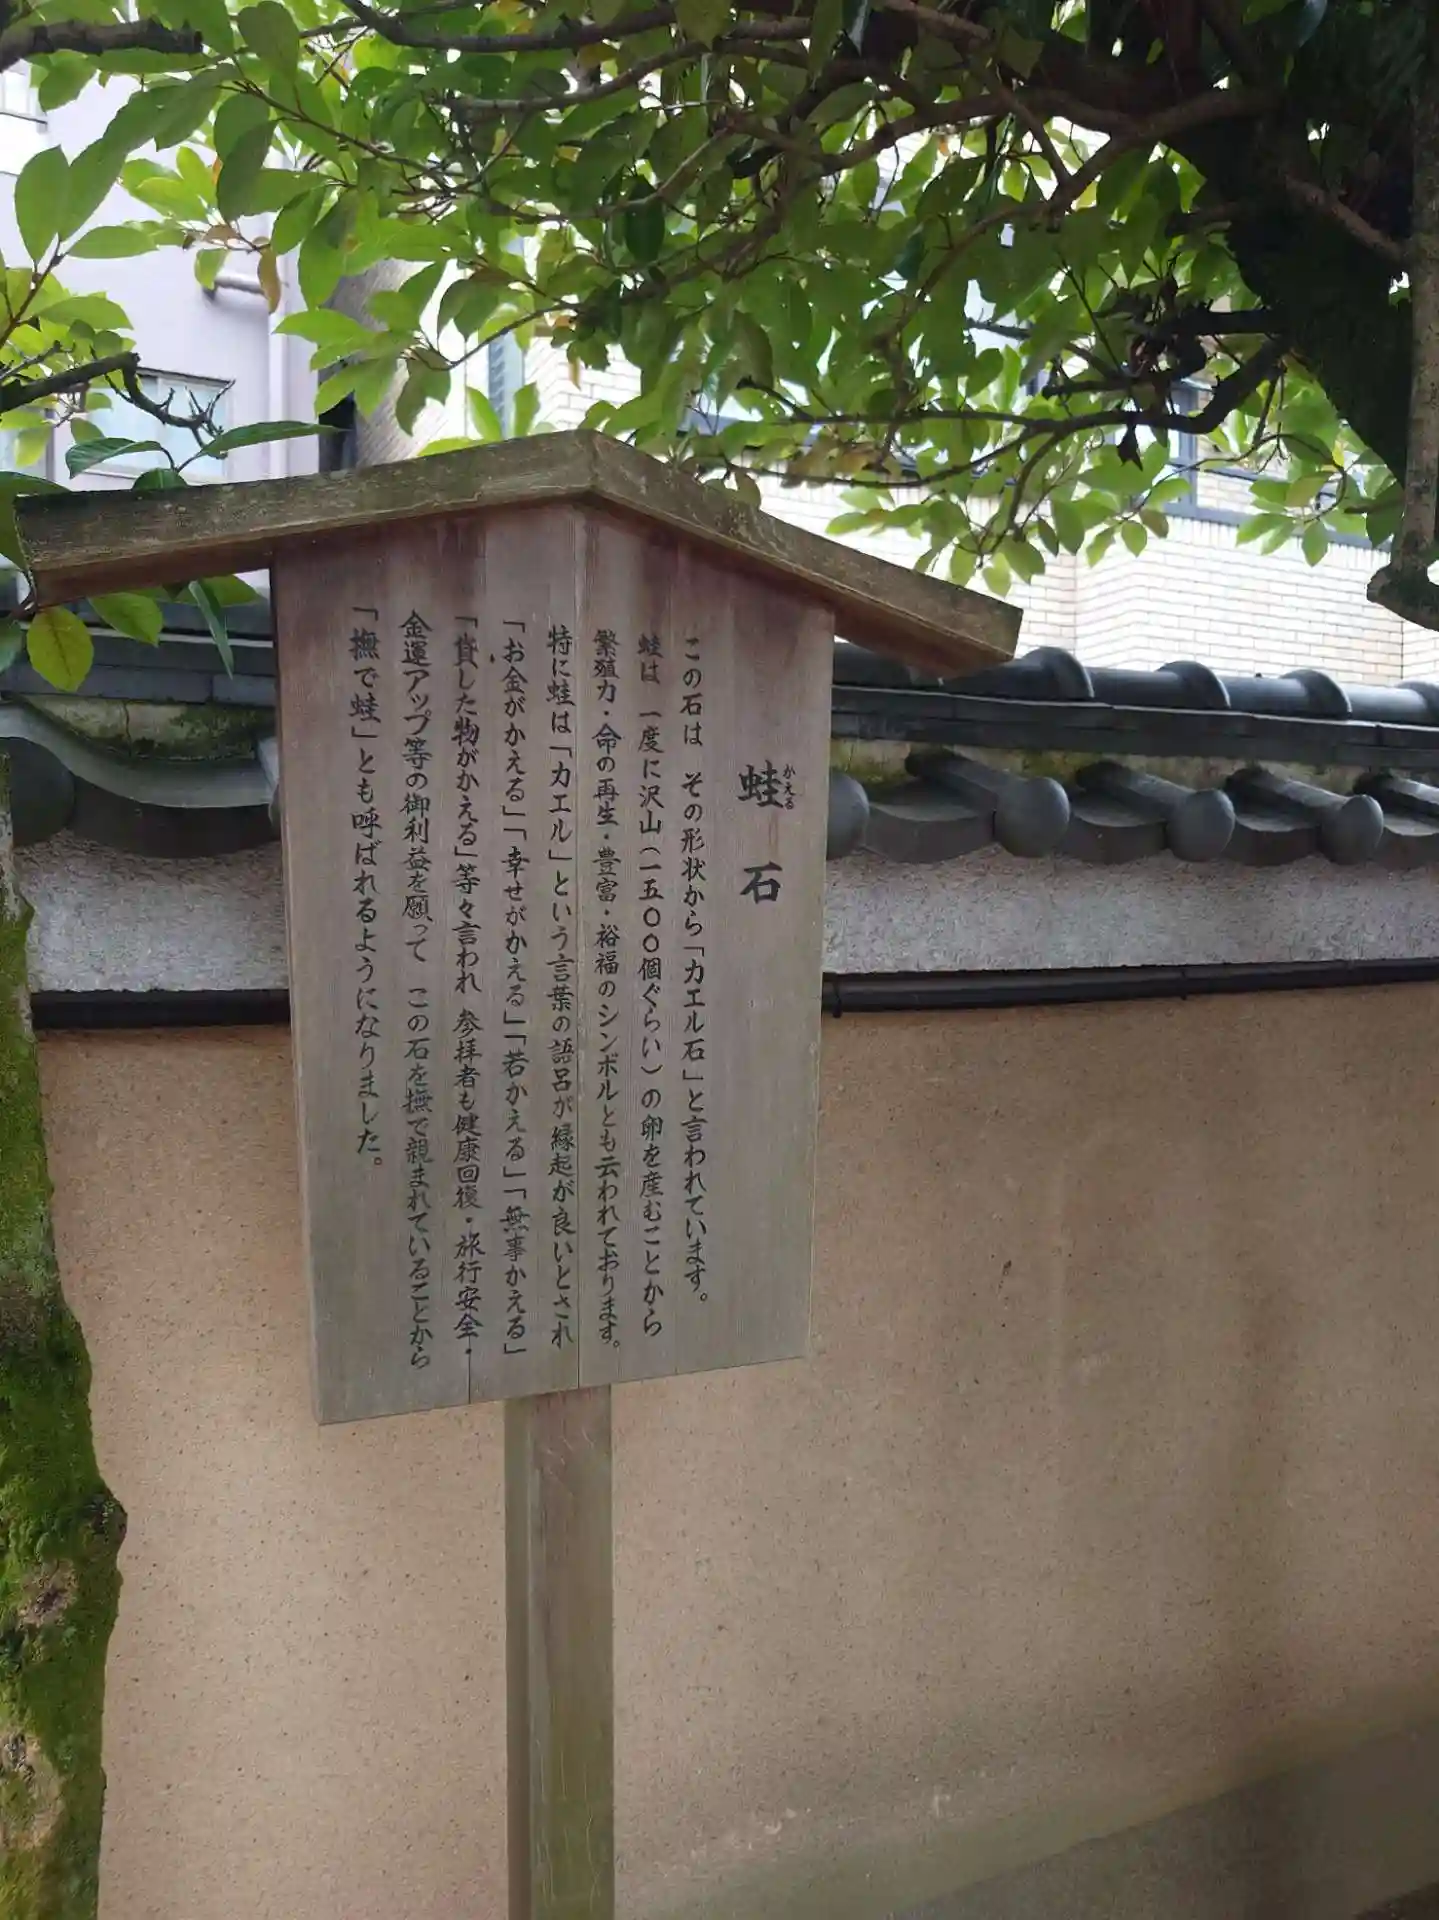 蛙石
かえる
この石は その形状から「カエル石」と言われています。
蛙は 一度に沢山(一五〇〇個ぐらい)の卵を産むことから
繁殖力・命の再生・豊富・裕福のシンボルとも云われております。
特に蛙は「カエル」という言葉の語呂が縁起が良いとされ
「お金がかえる」「幸せがかえる」「若かえる」「無事かえる」
「貸した物がかえる」等々言われ 参拝者も健康回復・旅行安全・
金運アップ等の御利益を願って この石を撫で親まれていることから
「撫で蛙」とも呼ばれるようになりました。